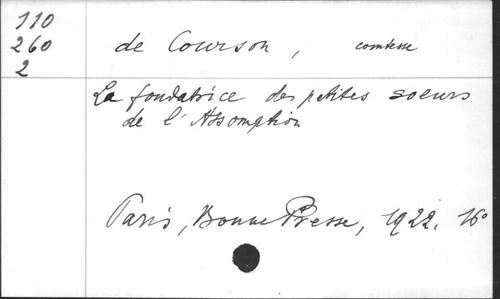 110
260
2
de Courson, comtesse
La fondatrice des petites soeurs
de l'Assomption
Paris, Bonne Presse, 1922. 16°